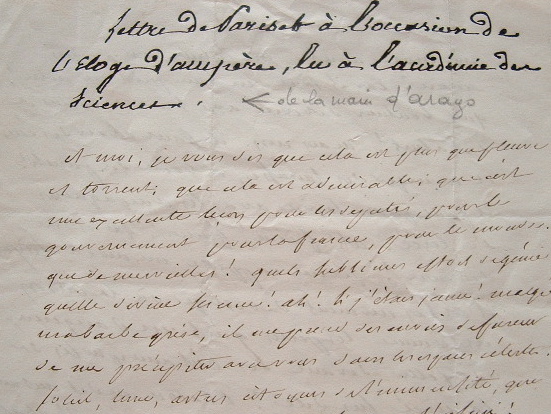 Lettre de Pariset à l'occasion de
l'Eloge d'ampère, lu à l'académie des
Sciences.
← de la main d'arago
Et moi, je vous dis que cela est plus que fleuve
et torrent; que cela est admirable; que c'est
une excellente leçon pour les députés, pour le
gouvernement pour la france, pour le monde.
que de merveilles! quels sublimes effort de génie
quelle divine science! ah! si j'étais jeune! malgré
ma barbe grise, il me prend des envies de fureur
de me précipiter avec vous dans les espaces célestes.
Soleil, lune, astres citoyens de l'immensité, que